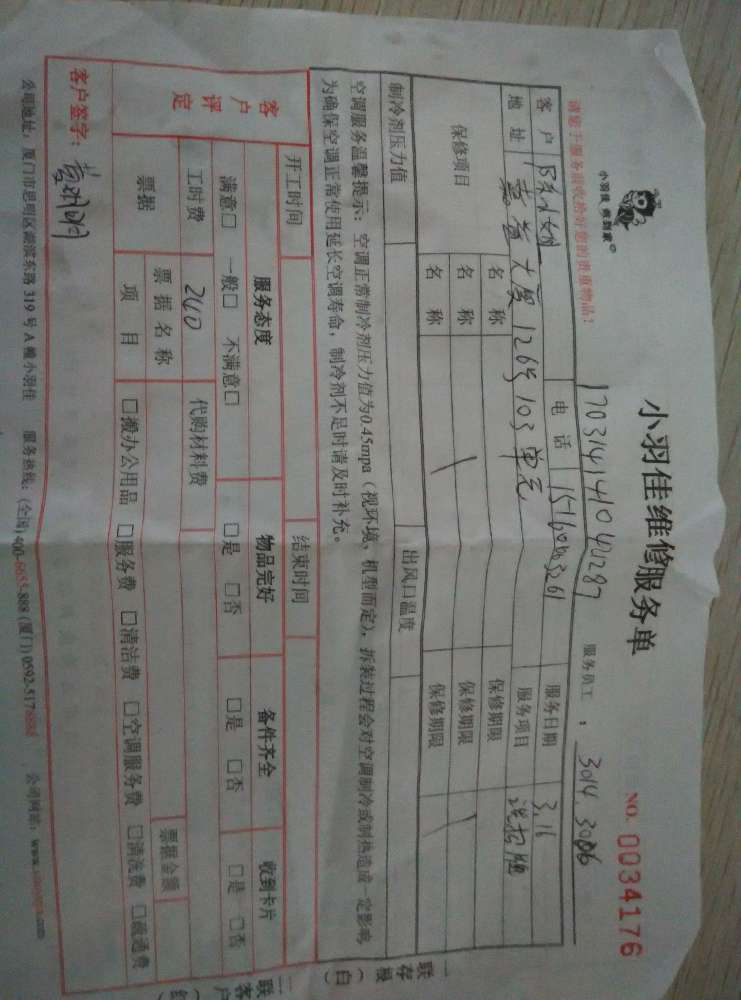 小羽佳维修服务单
NO. 0034176
小羽佳 帮到家
服务员工：3014.3006
客户 电话 服务日期 3.16
地址 大厦126号103单元 服务项目
保修项目 名称 保修期限
名称 保修期限
名称 保修期限
制冷剂压力值 出风口温度
空调服务温馨提示：空调正常制冷剂压力值为0.45mpa（视环境、机型而定），拆装过程会对空调制冷或制热造成一定影响
为确保空调正常使用延长空调寿命，制冷剂不足时请及时补充。
开工时间 结束时间
客户评定 服务态度 物品完好 备件齐全 收到卡片
满意□ 一般□ 不满意□ □是 □否 □是 □否 □是 □否
工时费 200 代购材料费
票据 票据名称 票据金额
项目 □搬办公用品 □服务费 □清洁费 □空调服务费 □清洗费 □疏通费
客户签字：
公司地址：厦门市思明区 东路319号A幢小羽佳 服务热线：(全国)400- 888 (厦门)0592-517 公司网站：
一联存根（白）
二联客户